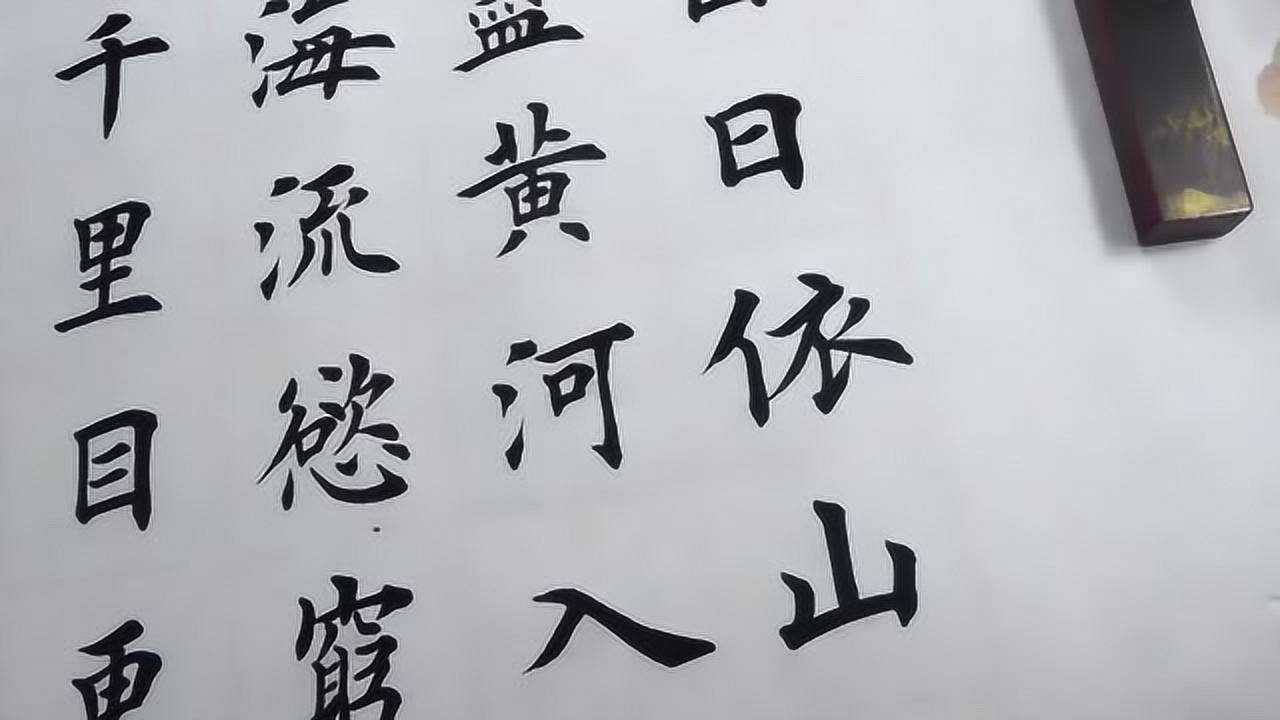 日依山
盡黄河入
海流慾窮
千里目更